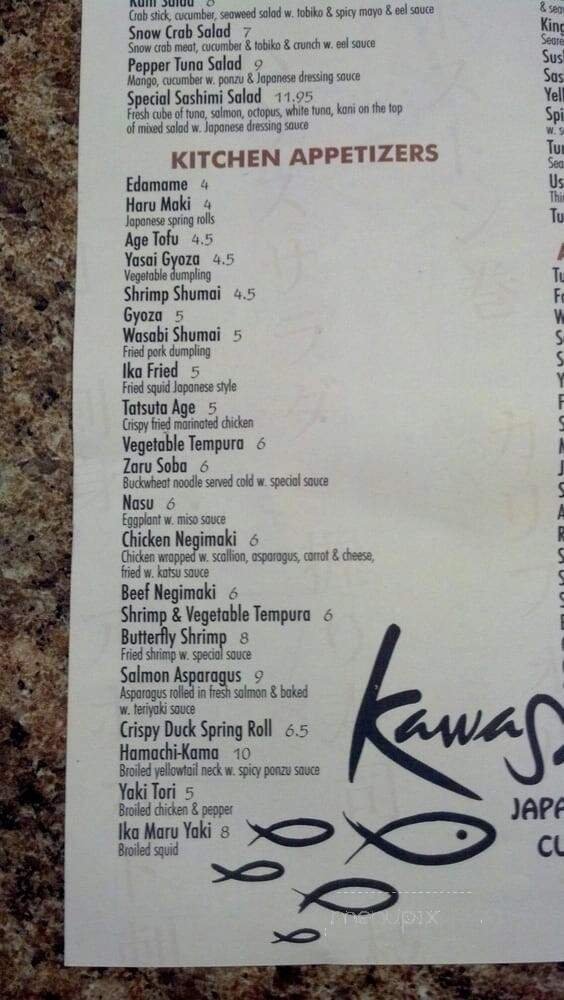 Kani Salad 8
Crab stick, cucumber, seaweed salad w. tobiko & spicy mayo & eel sauce
Snow Crab Salad 7
Snow crab meat, cucumber & tobiko & crunch w. eel sauce
Pepper Tuna Salad 9
Mango, cucumber w. ponzu & Japanese dressing sauce
Special Sashimi Salad 11.95
Fresh cube of tuna, salmon, octopus, white tuna, kani on the top
of mixed salad w. Japanese dressing sauce
KITCHEN APPETIZERS
Edamame 4
Haru Maki 4
Japanese spring rolls
Age Tofu 4.5
Yasai Gyoza 4.5
Vegetable dumpling
Shrimp Shumai 4.5
Gyoza 5
Wasabi Shumai 5
Fried pork dumpling
Ika Fried 5
Fried squid Japanese style
Tatsuta Age 5
Crispy fried marinated chicken
Vegetable Tempura 6
Zaru Soba 6
Buckwheat noodle served cold w. special sauce
Nasu 6
Eggplant w. miso sauce
Chicken Negimaki 6
Chicken wrapped w. scallion, asparagus, carrot & cheese,
fried w. katsu sauce
Beef Negimaki 6
Shrimp & Vegetable Tempura 6
Butterfly Shrimp 8
Fried shrimp w. special sauce
Salmon Asparagus 9
Asparagus rolled in fresh salmon & baked
w. teriyaki sauce
Crispy Duck Spring Roll 6.5
Hamachi-Kama 10
Broiled yellowtail neck w. spicy ponzu sauce
Yaki Tori 5
Broiled chicken & pepper
Ika Maru Yaki 8
Broiled squid
Kawas
JAPA
CU
menupix